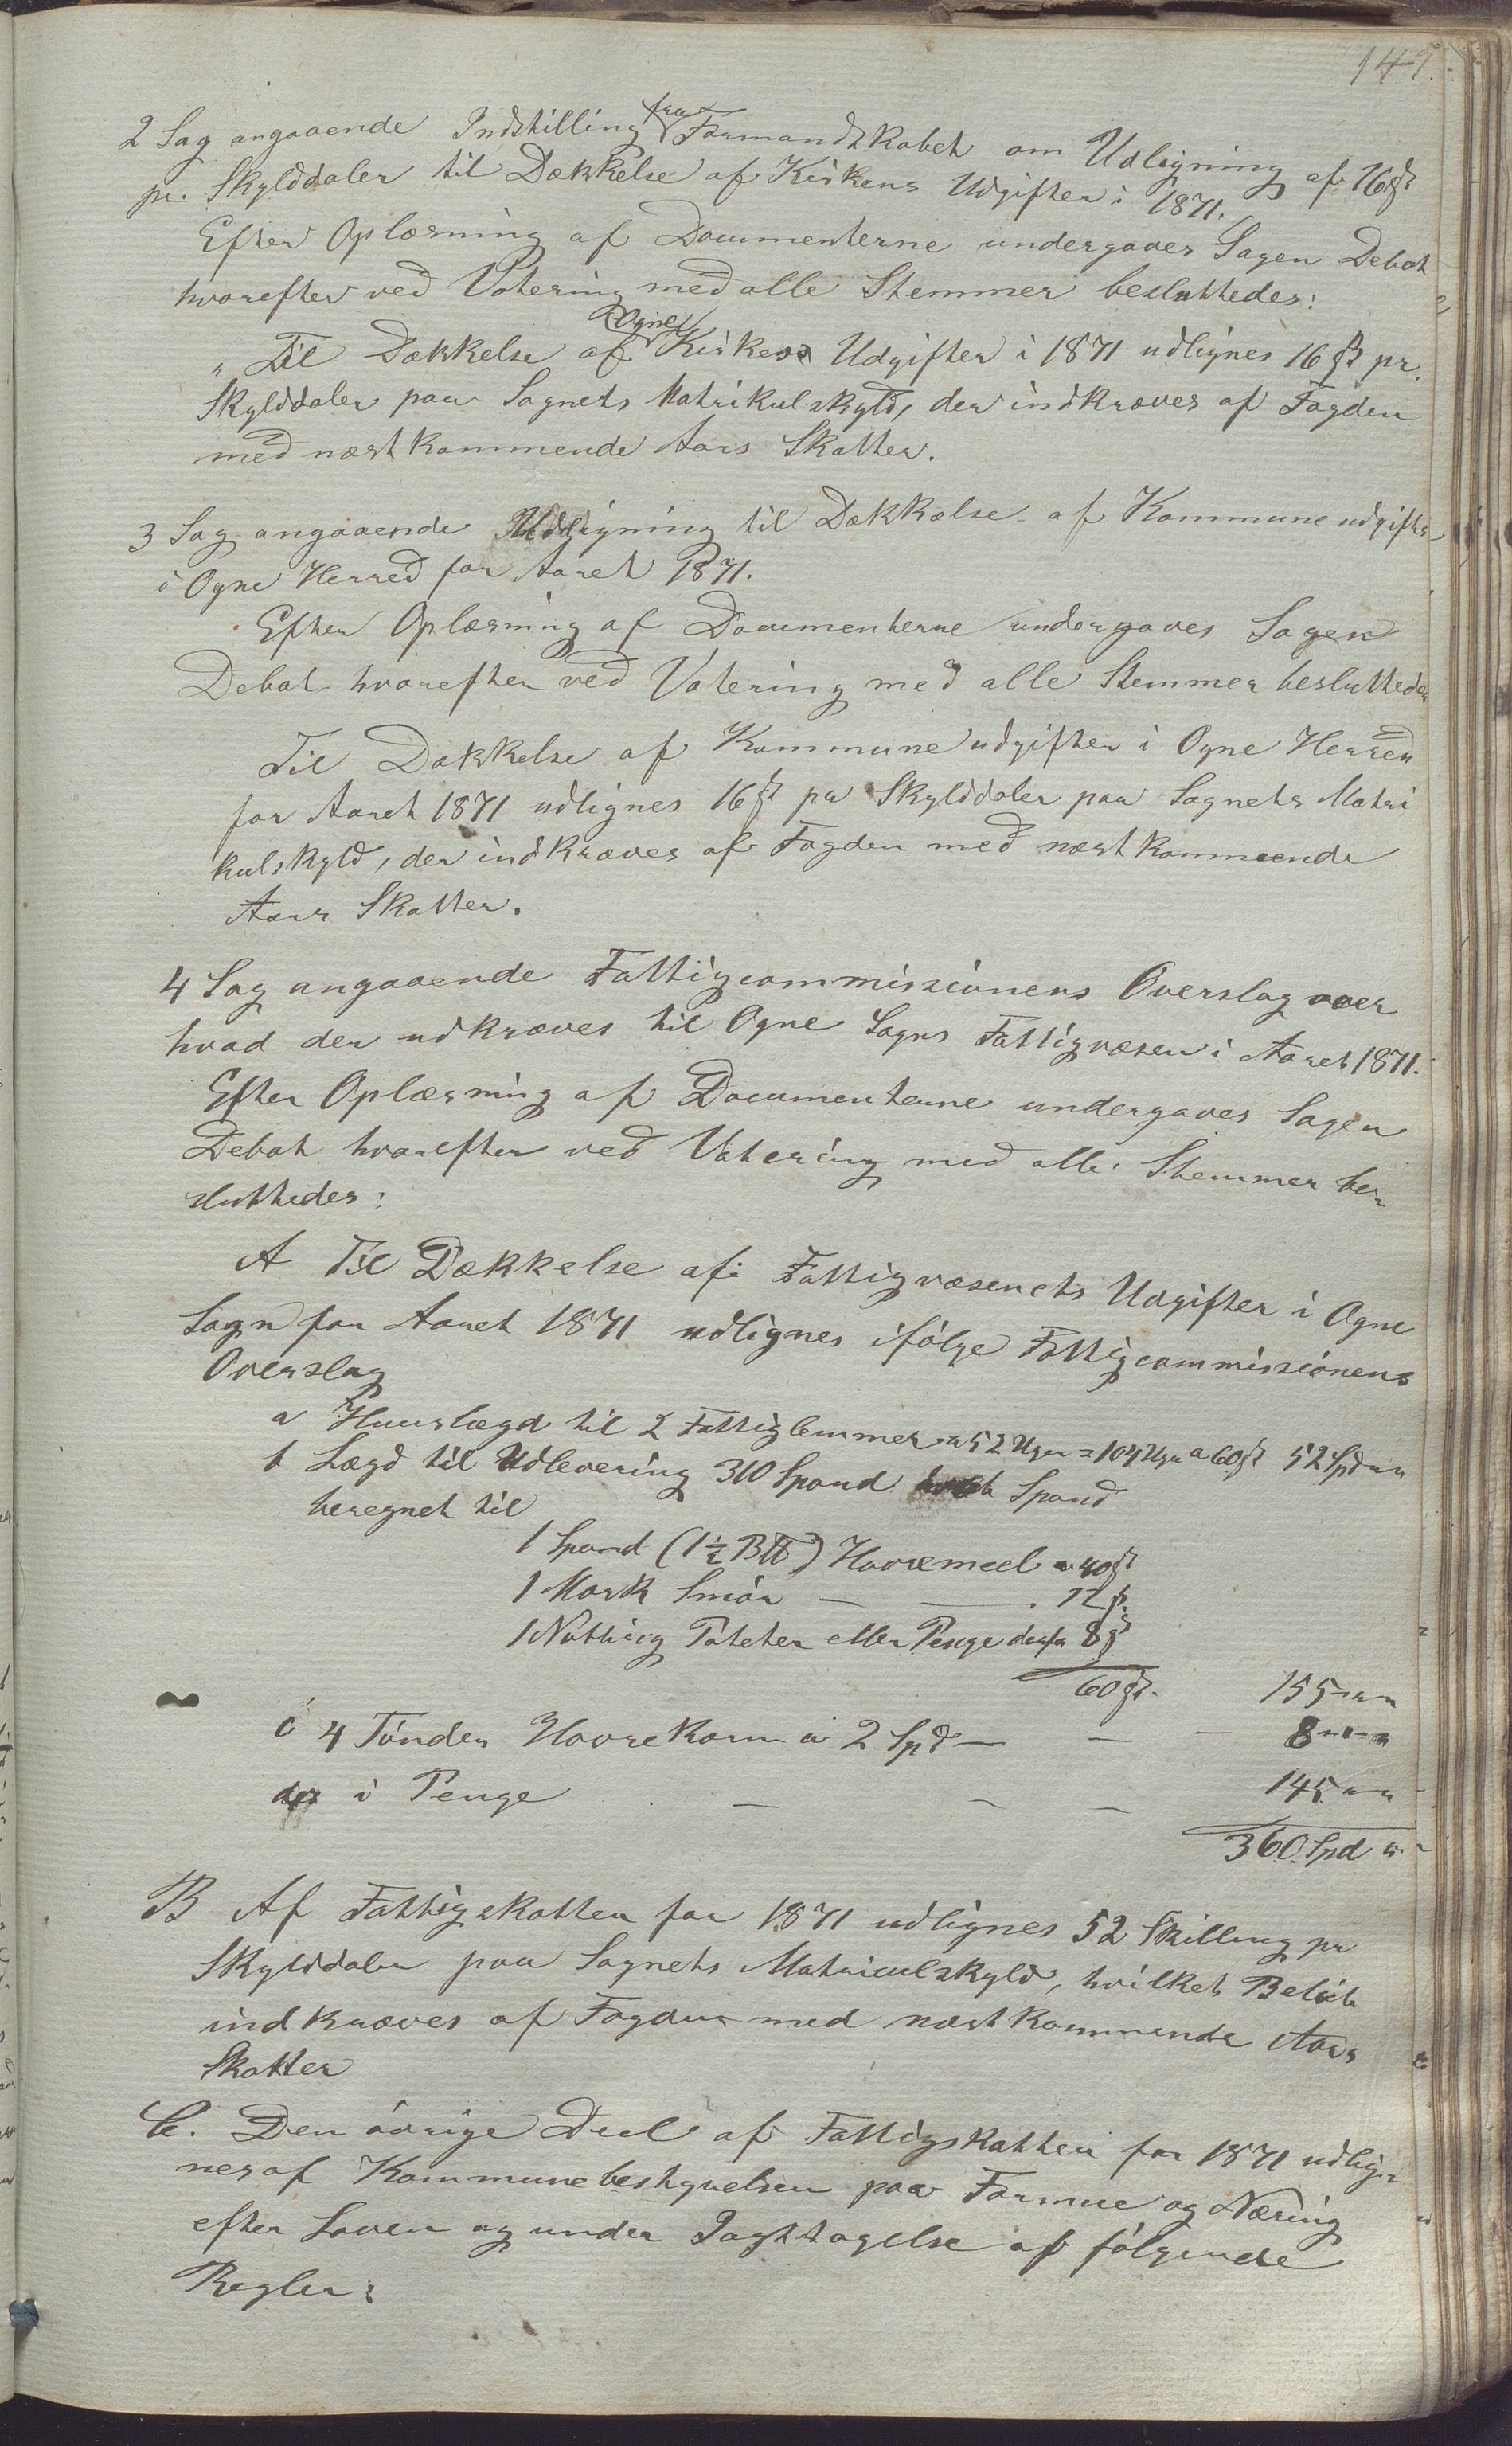 147.
2 Sag angaaende Indstilling fra Formandskabet om Udligning af 16 ß
pr. Skylddaler til Dækkelse af Kirkens Udgifter i 1871.
Efter Oplæsning af Documenterne undergaves Sagen Debat
hvorefter ved Votering med alle Stemmer besluttedes:
"Til Dækkelse af Ogne Kirkes Udgifter i 1871 udlignes 16 ß pr.
Skylddaler paa Sognets Matrikulskyld, der indkræves af Fogden
med næstkommende Aars Skatter.
3 Sag angaaende Udligning til Dækkelse af Kommuneudgifter
i Ogne Herred for Aaret 1871.
Efter Oplæsning af Documenterne undergaves Sagen
Debat hvorefter ved Votering med alle Stemmer besluttedes
Til Dækkelse af Kommuneudgifter i Ogne Herred
for Aaret 1871 udlignes 16 ß pr Skylddaler paa Sognets Matri
kulskyld, der indkræves af Fogden med næstkommende
Aars Skatter.
4 Sag angaaende Fattigcommissionens Overslag over
hvad der udkræves til Ogne Sogns Fattigvæsen i Aaret 1871.
Efter Oplæsning af Documenterne undergaves Sagen
Debat hvorefter ved Votering med alle Stemmer be-
sluttedes:
A Til Dækkelse af Fattigvæsenets Udgifter i Ogne
Sogn for Aaret 1871 udlignes ifølge Fattigcommissionens
Overslag
a Huuslægd til 2 Fattiglemmer a 52 Uger = 104 Uger a 60 ß 52 Spd " "
b Lægd til Udlevering 310 Spand Spand
beregnet til
1 Spand (1½ B℔) Havremeel a 40 ß
1 Mark Smör — — 12 ß.
1 Notting Poteter eller Penge derfor 8 ß
60 ß. 155 " "
c 4 Tönder Havrekorn a 2 Spd — — — 8 " "
i Penge — — — 145 " "
360 Spd "
B Af Fattigskatten for 1871 udlignes 52 Skilling pr
Skylddaler paa Sognets Matriculskyld, hvilket Belöb
indkræves af Fogden med næstkommende Aars
Skatter
C. Den övrige Deel af Fattigskatten for 1871 udlig-
nes af Kommunebestyrelsen paa Formue og Næring
efter Loven og under Iagttagelse af fölgende
Regler: